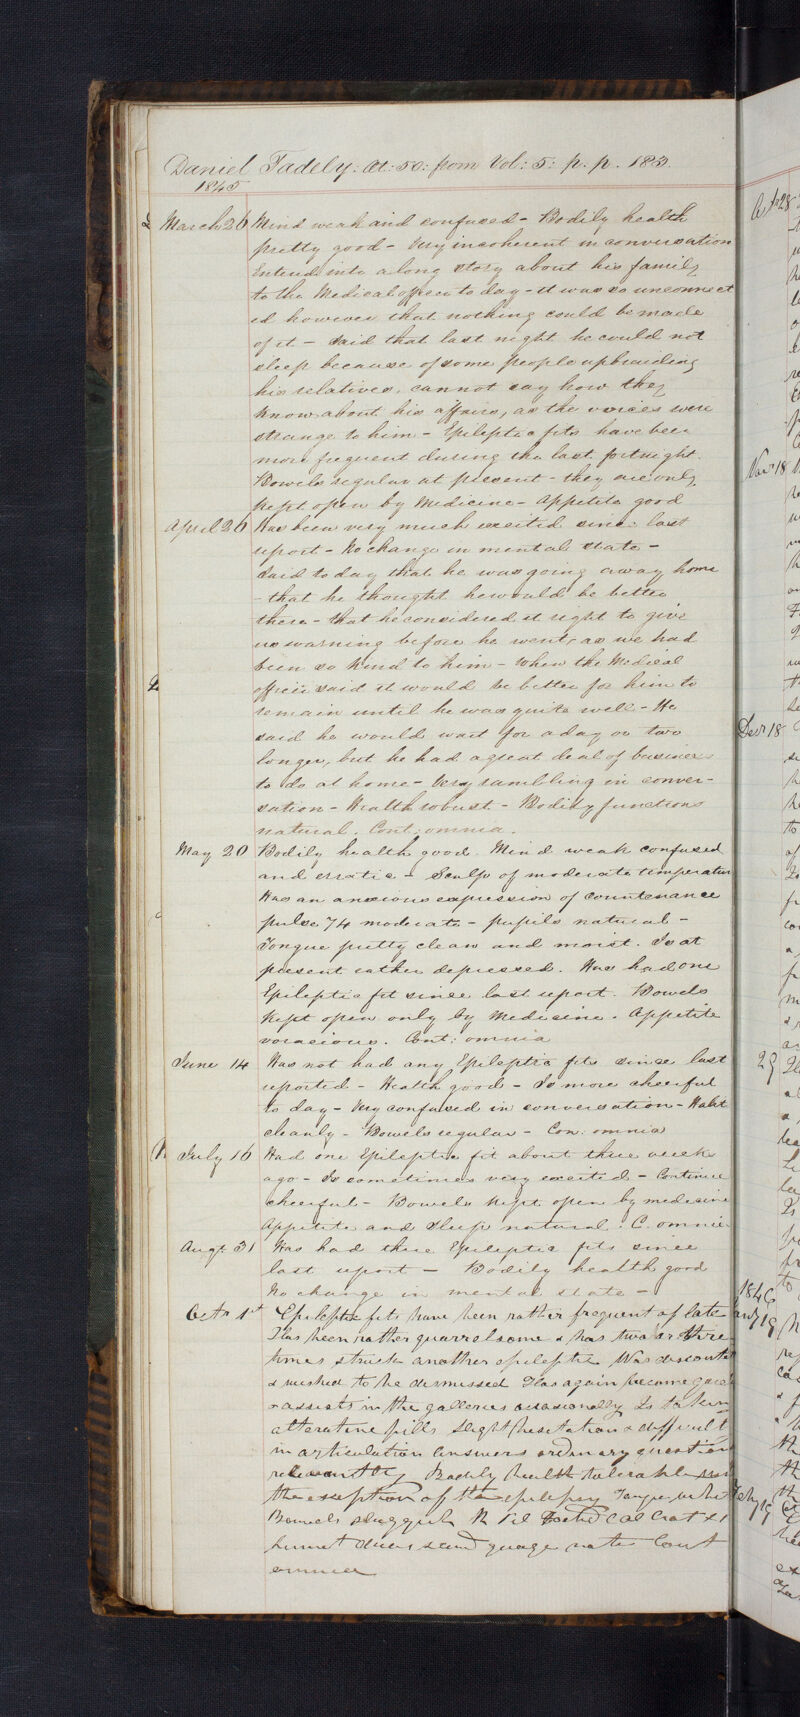 Daniel Tadely: Æt: 50: from Vol: 5: p. p. 183.
1845
March 26 Mind weak and confused - Bodily health
pretty good - Very incoherent in conversation
Entered into a long story about his family
to the Medical officer to day - it was so unconnect
ed however that nothing could be made
of it - Said that last night he could not
sleep because of some people upbraiding
his relatives, cannot say how they
know about his affairs, as the voices were
strange to him - Epileptic fits have been
more frequent during the last fortnight.
Bowels regular at present - they are only
kept open by Medicine - Appetite good
April 26 Has been very much excited since last
report - No change in mental state -
Said to day that he was going away home
- that he thought he would be better
there - that he considered it right to give
us warning before he went, as we had
been so kind to him - When the Medical
officer said it would be better for him to
remain until he was quite well - He
said he would wait for a day or two
longer, but he had a great deal of business
to do at home - Very rambling in conver-
sation - Health robust - Bodily functions
natural. Cont: omnia.
May 20 Bodily health good. Mind weak confused
and erratic - Scalp of moderate temperature
Has an anxious expression of countenance
pulse 74 moderate - pupils natural -
Tongue pretty clean and moist. Is at
present rather depressed. Has had one
Epileptic fit since last report. Bowels
kept open only by Medicine. Appetite
voracious. Cont: omnia
June 14 Has not had any Epileptic fits since last
reported - Health good - Is more cheerful
to day - Very confused in conversation - Habit
cleanly - Bowels regular - Con: omnia
July 16 Had one Epileptic fit about three weeks
ago - Is sometimes very excited - Continue
cheerful - Bowels kept open by medicine
Appetite and Sleep natural: C. omnia
Augt 31 Has had three Epileptic fits since
last report - Bodily health good
No change in mental state -
Octr 1st Epileptic fits have been rather frequent of late
Has been rather quarrelsome & has two or three
times struck another epileptic Was
& wished to be dismissed Has again become quiet
& assists in the galleries occasionally Is taking
alterative pills Slight hesitation & difficult
in articulation answers ordinary question
relevantly Bodily health tolerable
the exception of the epilepsy Tongue white
Bowels sluggish R Pil
omnia
Oct 28
Novr 18
Decr 18
29
1846
Jany 19
Feby 19